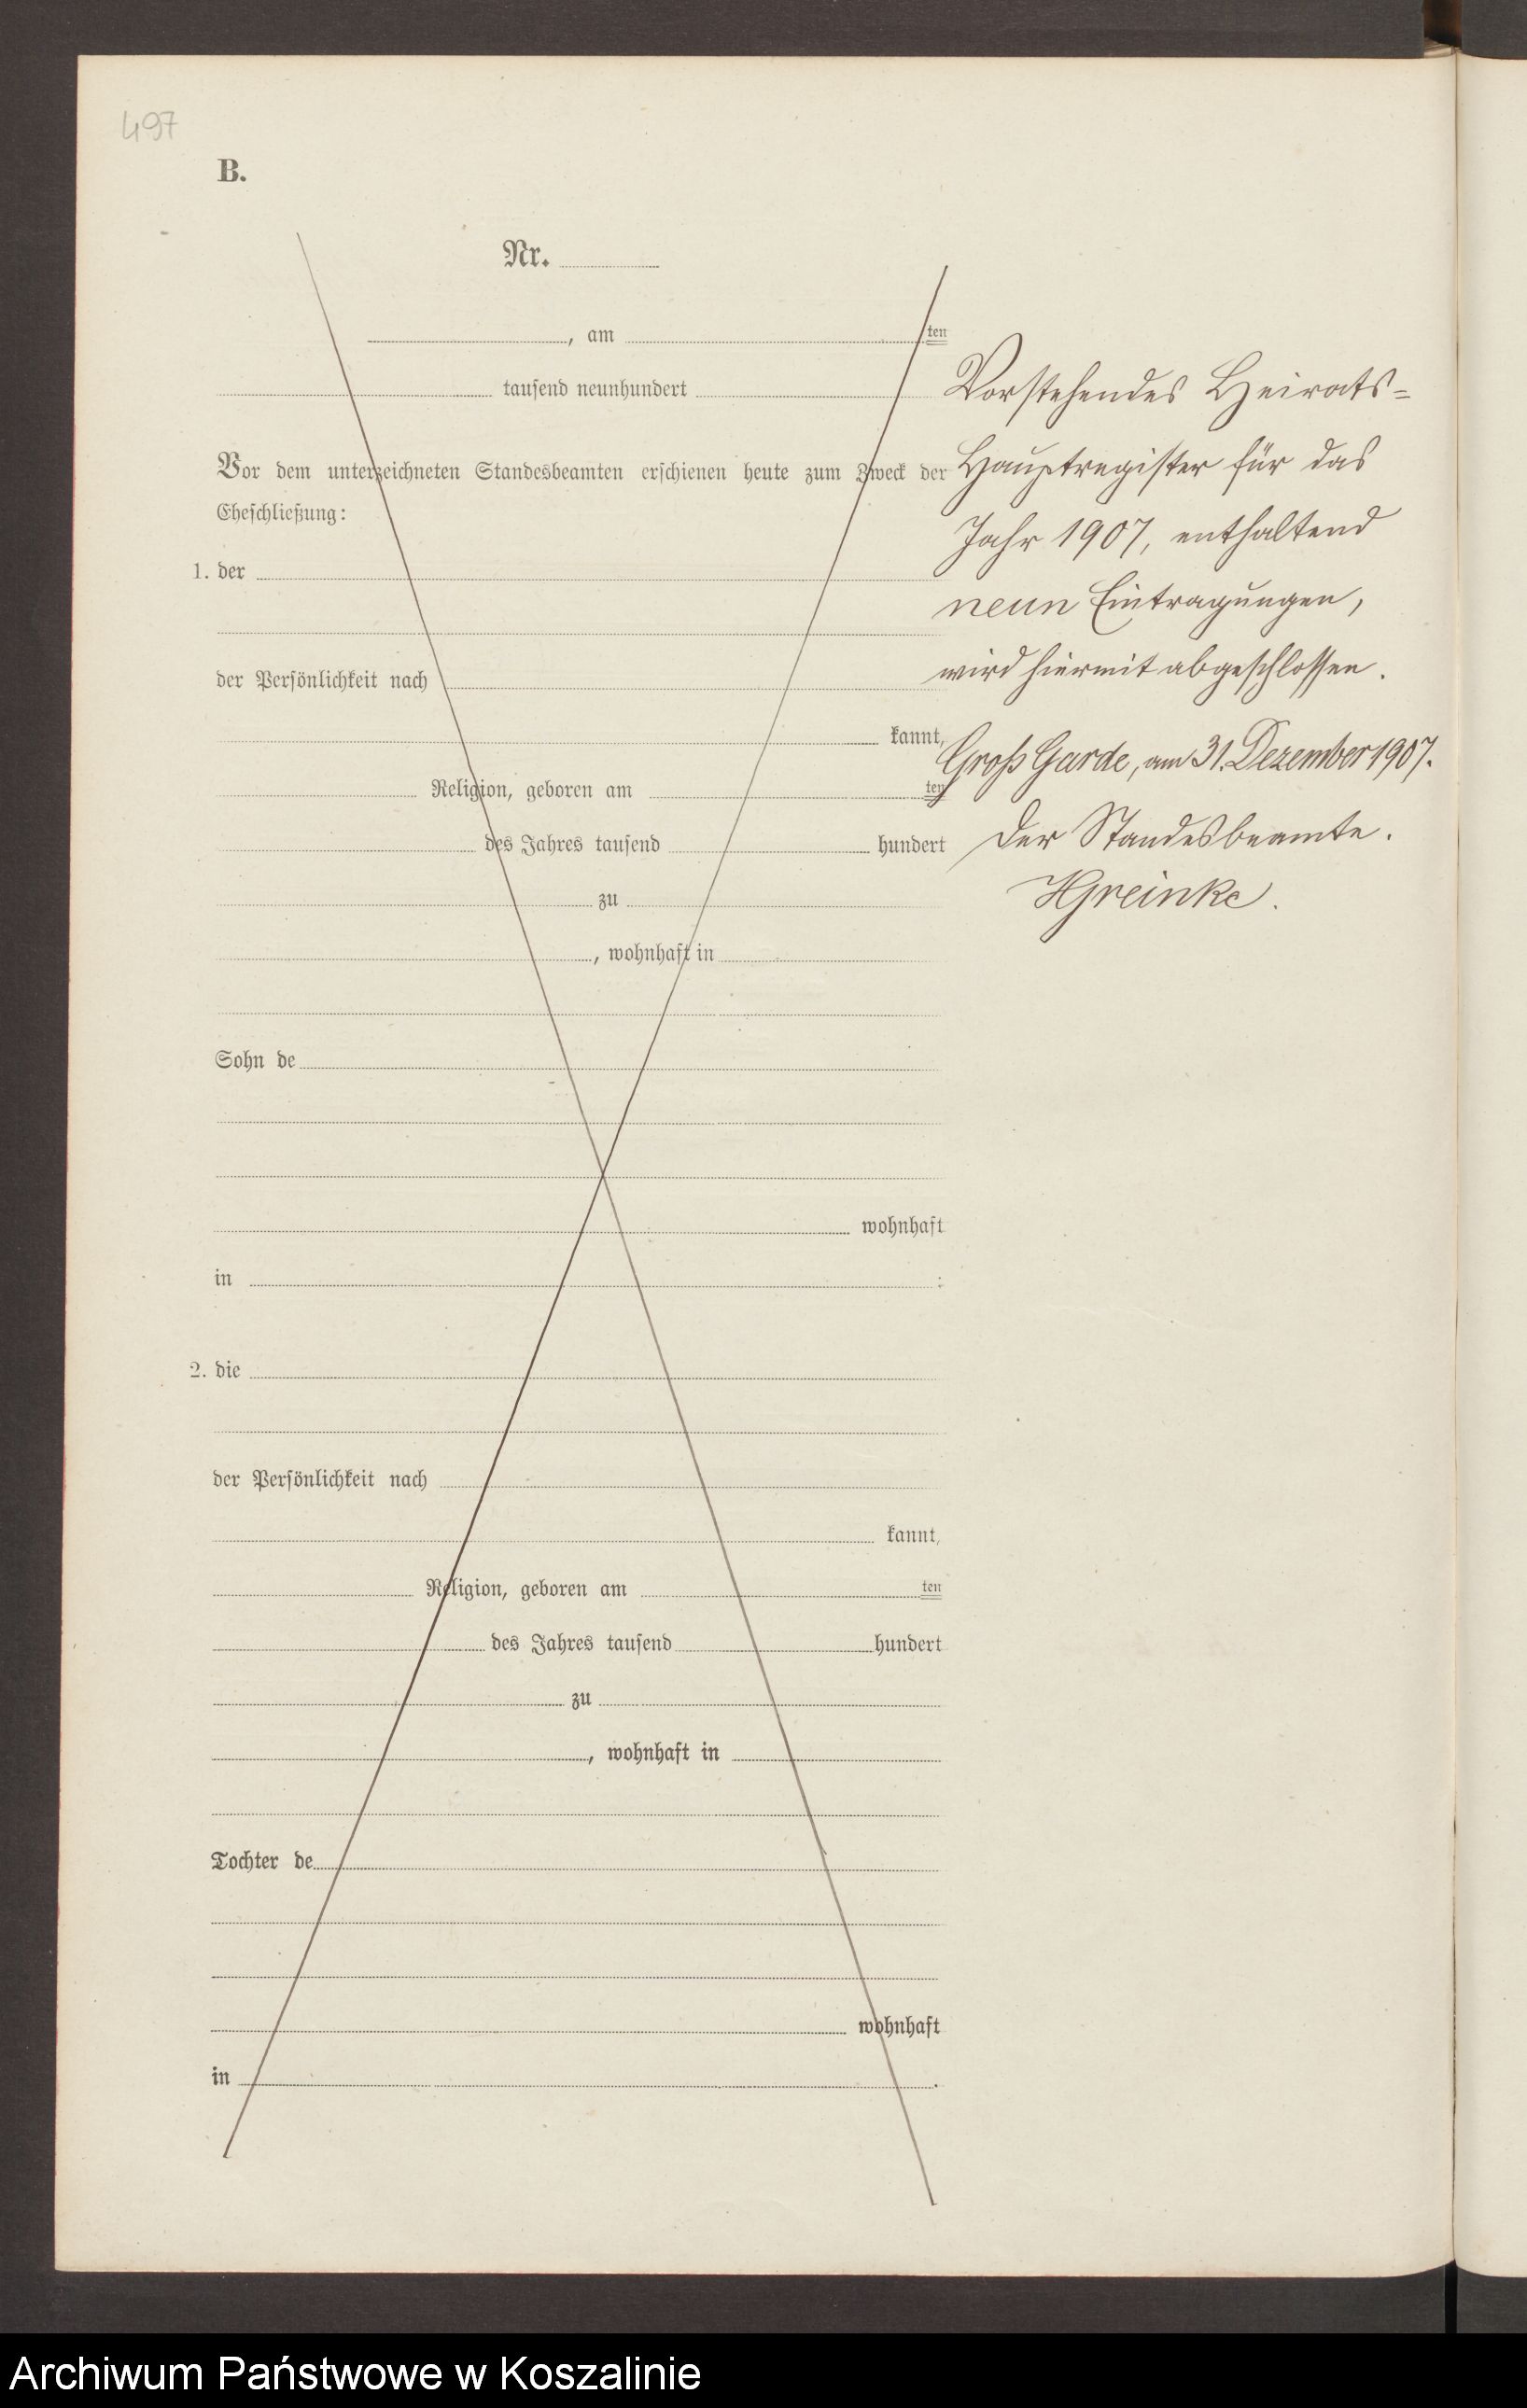 497
B.
Nr.
, am ten
tausend neunhundert
Vor dem unterzeichneten Standesbeamten erschienen heute zum Zweck der
Eheschließung:
1. der
der Persönlichkeit nach
kannt,
Religion, geboren am ten
des Jahres tausend hundert
zu
, wohnhaft in
Sohn de
wohnhaft
in :
2. die
der Persönlichkeit nach
kannt,
Religion, geboren am ten
des Jahres tausend hundert
zu
, wohnhaft in
Tochter de
wohnhaft
in .
Vorstehendes Heirats-
Hauptregister für das
Jahr 1907, enthaltend
neun Eintragungen,
wird hiermit abgeschlossen.
Groß Garde, am 31. Dezember 1907.
Der Standesbeamte.
HGreinke.
Archiwum Państwowe w Koszalinie